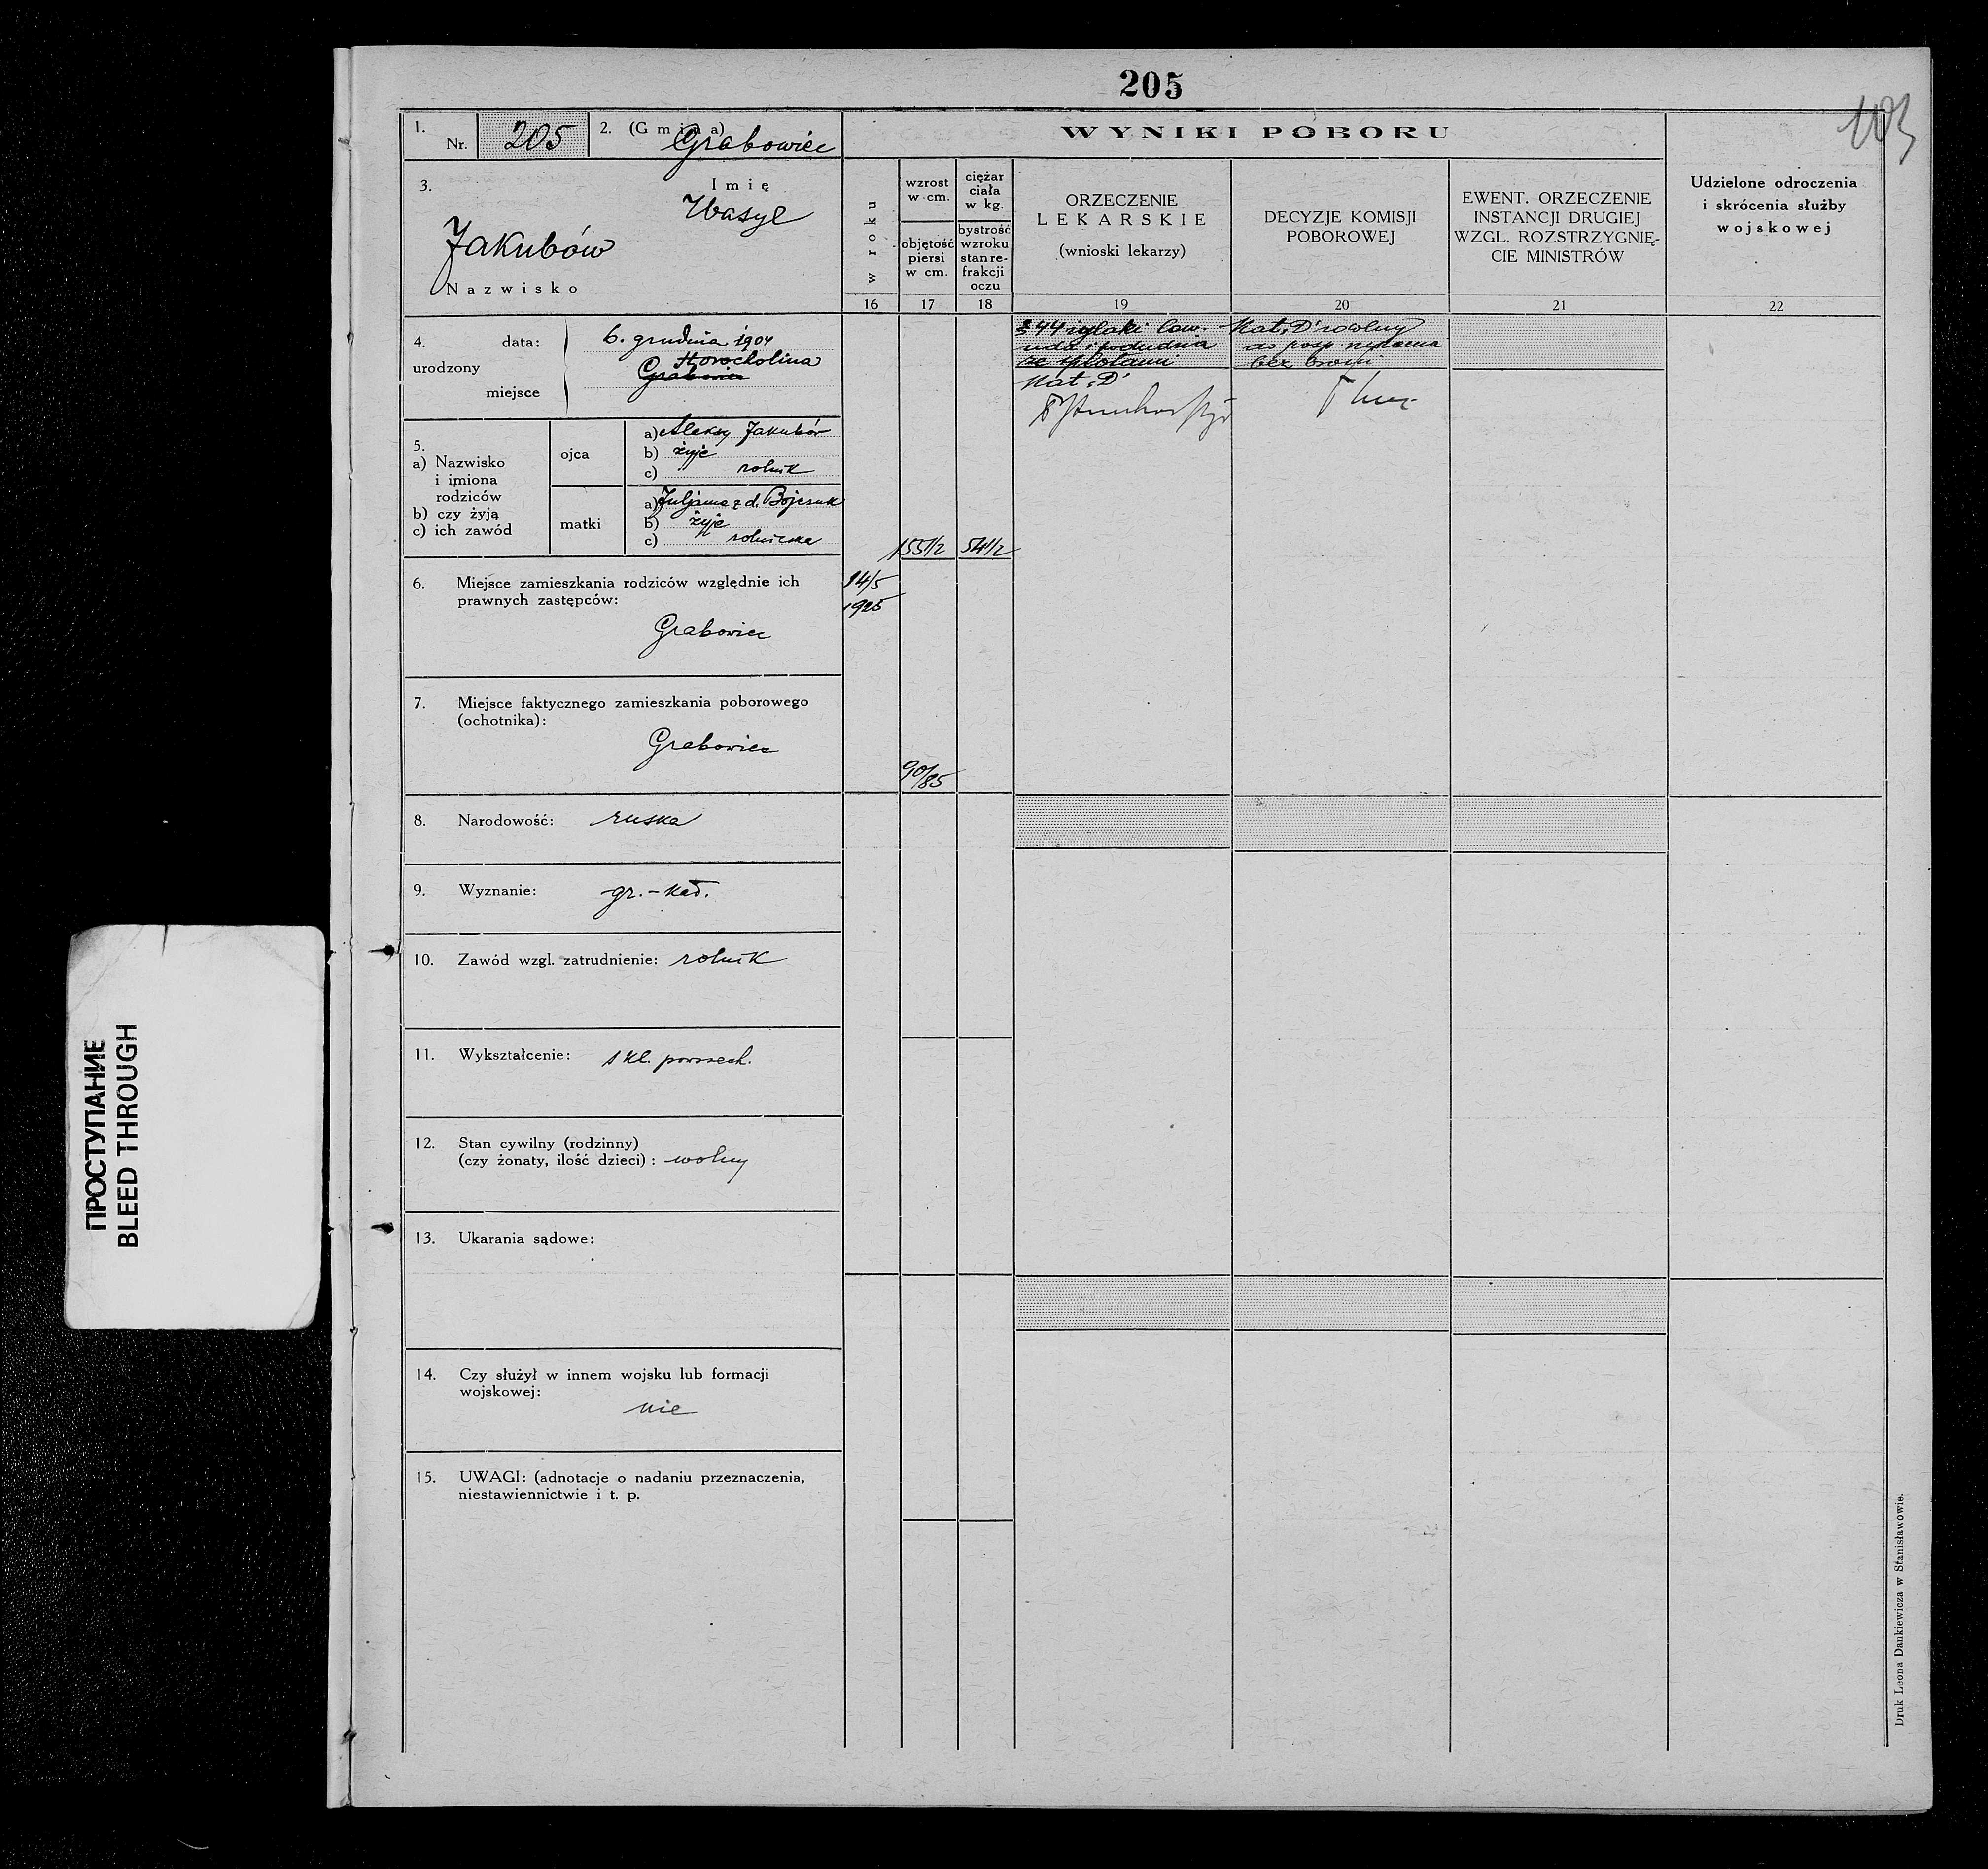 205
103
1.
Nr. 205
2. (Gmina) Grabowiec
3.
Imię
Wasyl
Jakubów
Nazwisko
4.
urodzony
data: 6. grudnia 1904
miejsce
Horocholina
Grabowiec
5.
a) Nazwisko
i imiona
rodziców
b) czy żyją
c) ich zawód
ojca
a) Aleksy Jakubów
b) żyje
c) rolnik
matki
a) Juljanna z d. Bojczuk
b) żyje
c) rolniczka
6. Miejsce zamieszkania rodziców względnie ich
prawnych zastępców:
Grabowiec
7. Miejsce faktycznego zamieszkania poborowego
(ochotnika):
Grabowiec
8. Narodowość: ruska
9. Wyznanie: gr.-kat.
10. Zawód wzgl. zatrudnienie: rolnik
11. Wykształcenie: 1 kl. powszech.
12. Stan cywilny (rodzinny)
(czy żonaty, ilość dzieci): wolny
13. Ukarania sądowe:
14. Czy służył w innem wojsku lub formacji
wojskowej:
nie
15. UWAGI: (adnotacje o nadaniu przeznaczenia,
niestawiennictwie i t. p.
WYNIKI POBORU
w roku
16
wzrost
w cm.
objętość
piersi
w cm.
17
ciężar
ciała
w kg.
bystrość
wzroku
stan re-
frakcji
oczu
18
ORZECZENIE
LEKARSKIE
(wnioski lekarzy)
19
DECYZJE KOMISJI
POBOROWEJ
20
EWENT. ORZECZENIE
INSTANCJI DRUGIEJ
WZGL. ROZSTRZYGNIĘ-
CIE MINISTRÓW
21
Udzielone odroczenia
i skrócenia służby
wojskowej
22
14/5
1925
155 1/2
54 1/2
90/85
§ 44 żylaki lew.
uda i podudzia
ze splotami
Kat. „D"
Kat. „D" zdolny
do posp. ruszenia
bez broni
Druk Leona Dankiewicza w Stanisławowie.
ПРОСТУПАНИЕ
BLEED THROUGH